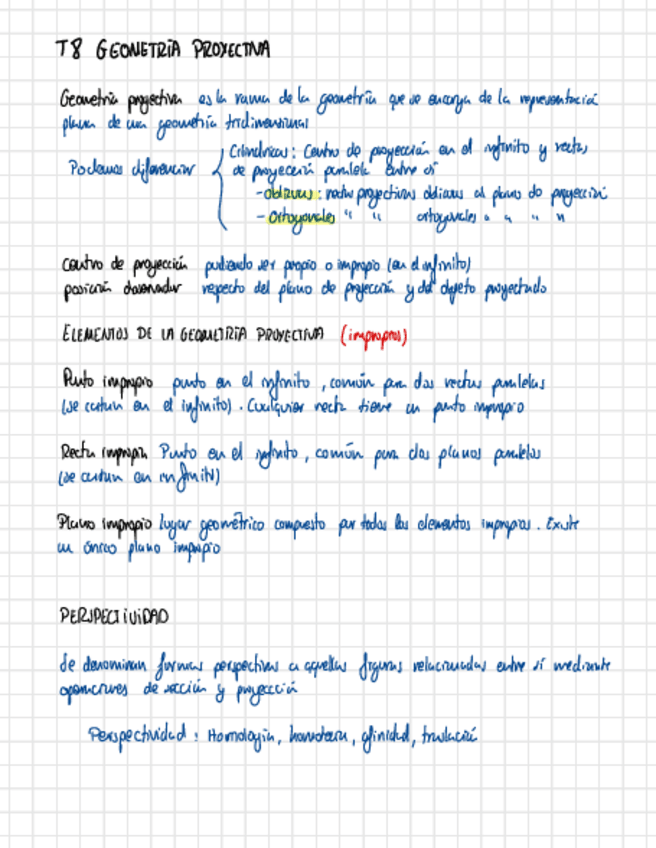 T8 GEOMETRÍA PROYECTIVA
Geometría proyectiva es la rama de la geometría que se encarga de la representación
plana de una geometría tridimensional
Podemos diferenciar
Cilíndricas: Centro de proyección en el infinito y rectas
de proyección paralela entre sí
- oblicuas: rectas proyectivas oblicuas al plano de proyección
- Ortogonales " " ortogonales " " " "
Centro de proyección pudiendo ser propio o impropio (en el infinito)
posición observador respecto del plano de proyección y del objeto proyectado
ELEMENTOS DE LA GEOMETRÍA PROYECTIVA (impropios)
Punto impropio punto en el infinito, común para dos rectas paralelas
(se cortan en el infinito). Cualquier recta tiene un punto impropio
Recta impropia Punto en el infinito, común para dos planos paralelos
(se cortan en infinito)
Plano impropio lugar geométrico compuesto por todos los elementos impropios. Existe
un único plano impropio
PERSPECTIVIDAD
Se denominan formas perspectivas a aquellas figuras relacionadas entre sí mediante
operaciones de sección y proyección
Perspectividad: Homología, homotecia, afinidad, traslación